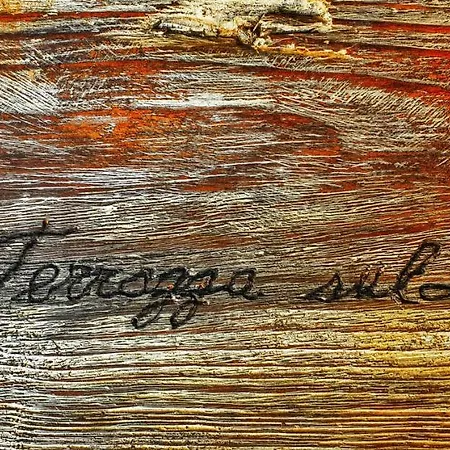 Terrazza sul